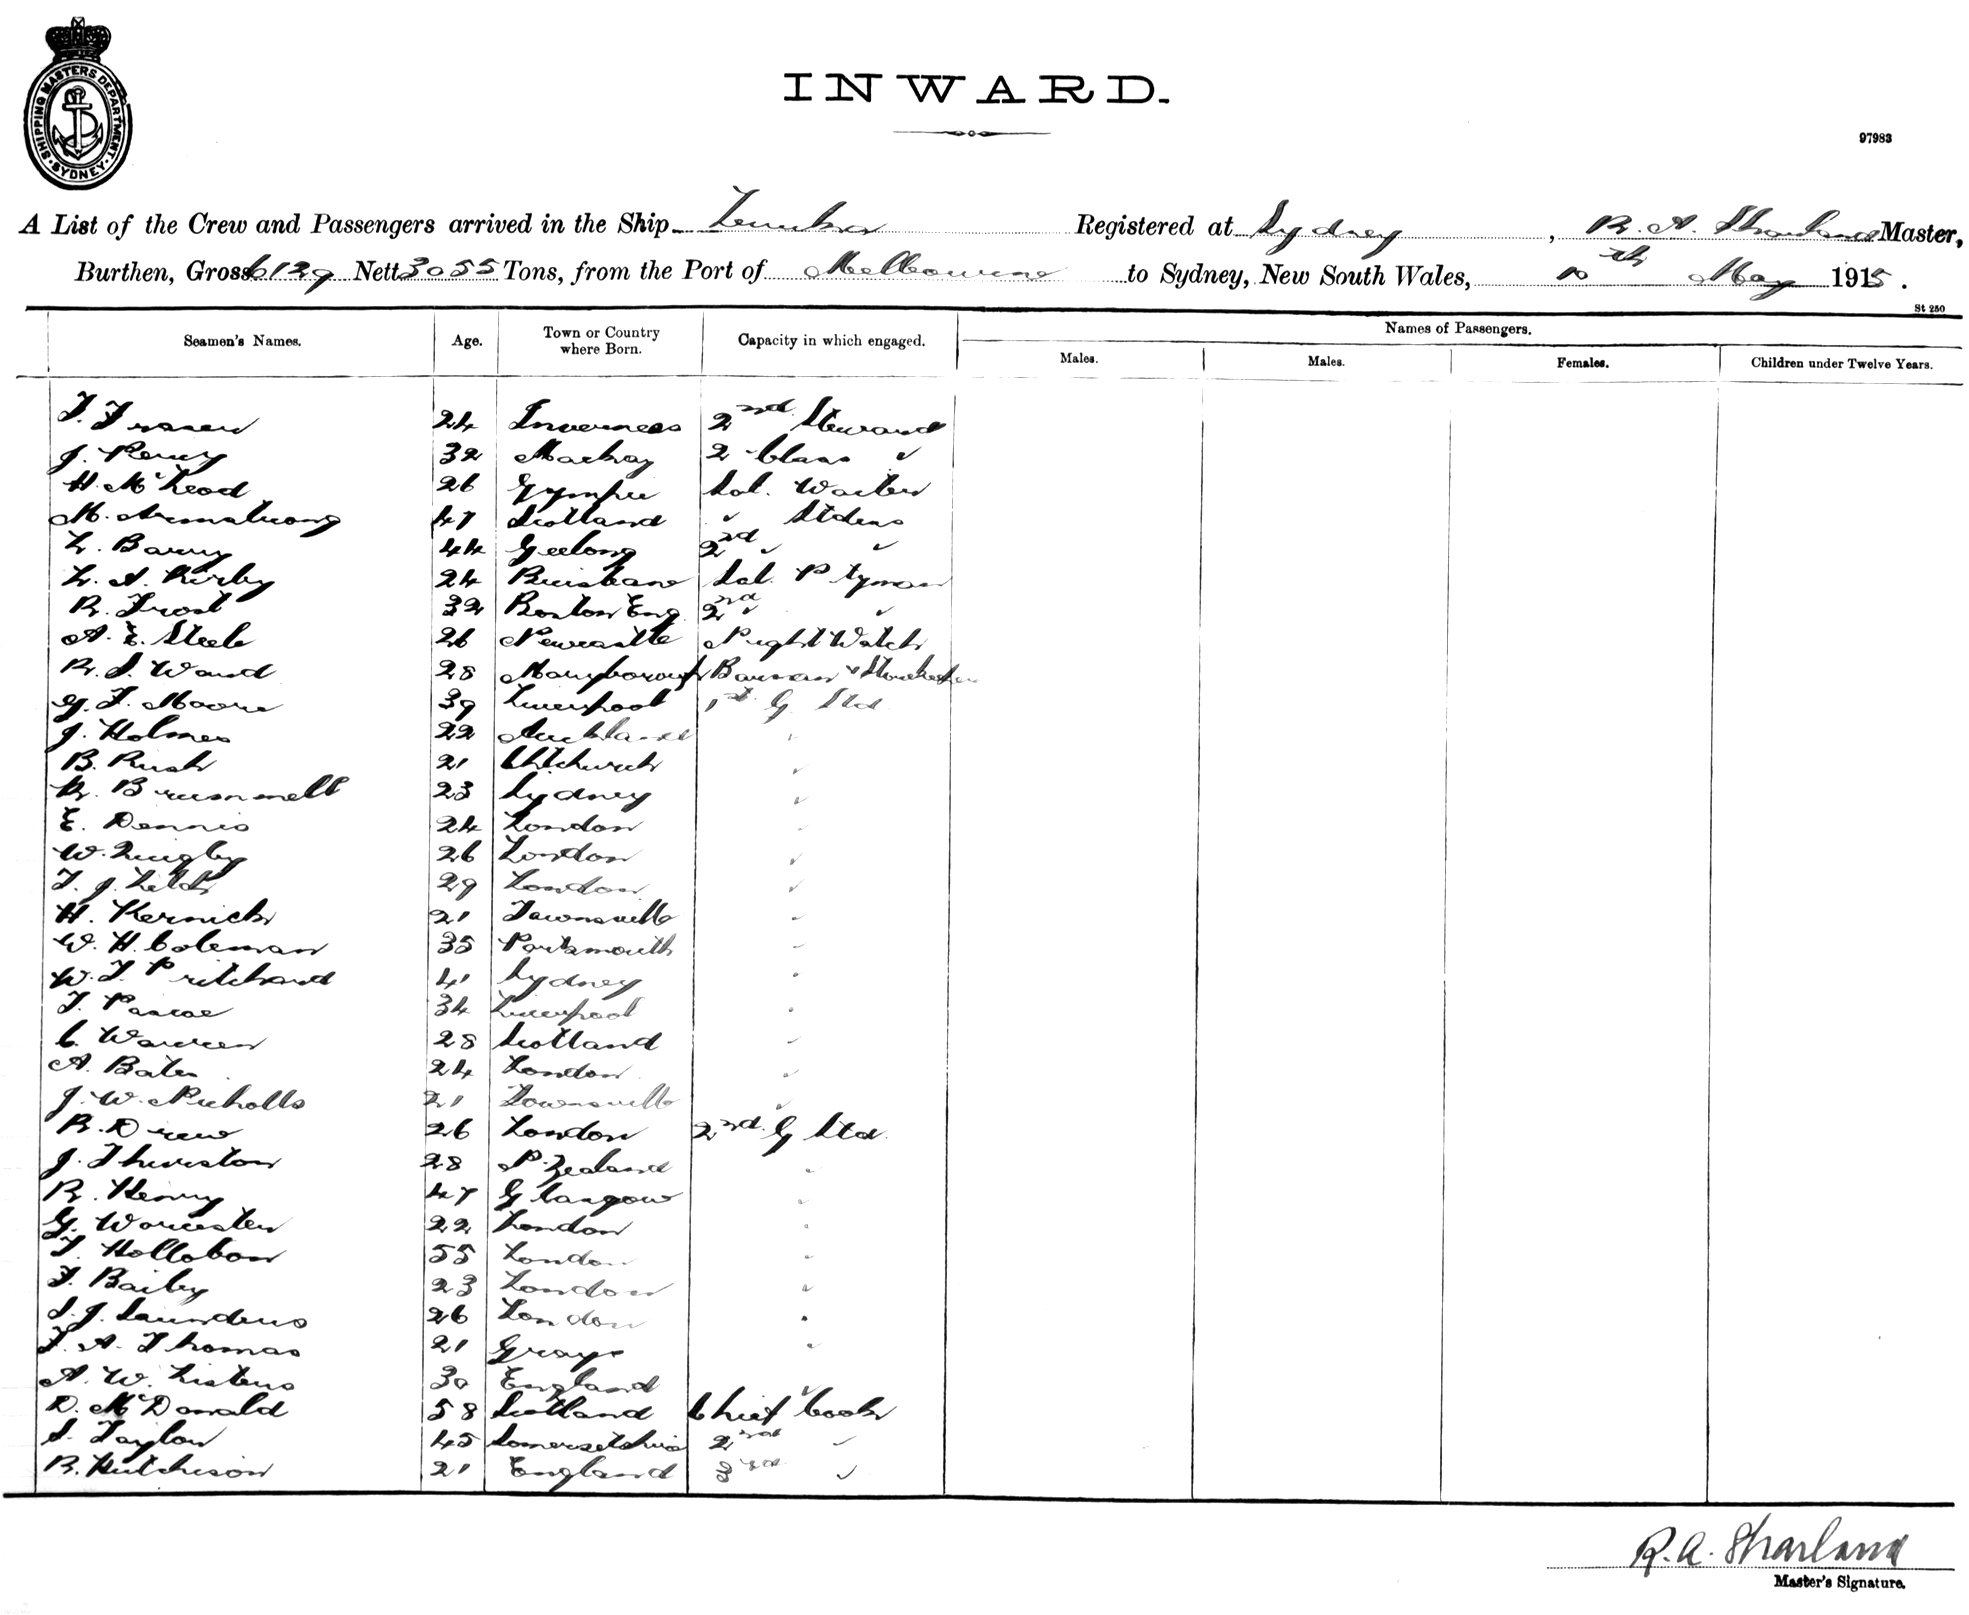 SHIPPING MASTERS DEPARTMENT
SYDNEY
INWARD.
97983
A List of the Crew and Passengers arrived in the Ship Registered at Sydney, R. A. Sharland Master,
Burthen, Gross 6129 Nett 3055 Tons, from the Port of Melbourne to Sydney, New South Wales, 10th May 1915.
St 250
Seamen's Names. Age. Town or Country where Born. Capacity in which engaged. Names of Passengers.
Males. Males. Females. Children under Twelve Years.
T. Fraser 24 Inverness 2nd Steward
J. Percy 32 Mackay 2 Class "
H. McLeod 26 Gympie Sal. Waiter
M. Armstrong 47 Scotland " Stdess
L. Barry 44 Geelong 2nd " "
L. A. Kirby 24 Brisbane Sal. P tyman
R. Frost 32 Boston Eng 2nd " "
A. E. Steele 26 Newcastle Night Watch
R. S. Ward 28 Maryborough Barman & Storekeeper
G. F. Moore 39 Liverpool 1st G Std
J. Holmes 22 Auckland "
B. Rush 21 Chtchurch "
R. Brummell 23 Sydney "
E. Dennis 24 London "
W. 26 London "
T. J. 29 London "
H. Kernick 21 Townsville "
W. H. Coleman 35 Portsmouth "
W. T. Pritchard 41 Sydney "
T. Pascoe 34 Liverpool "
C. Warren 28 Scotland "
A. Bates 24 London "
J. W. Nicholls 21 Townsville "
R. Drew 26 London 2nd G Std.
J. Thurston 28 N. Zealand "
R. Henry 47 Glasgow "
G. Worcester 22 London "
T. Hollobon 55 London "
F. Bailey 23 London "
S. J. Saunders 26 London "
F. A. Thomas 21 Grays "
A. W. Listers 30 England "
D. McDonald 58 Scotland Chief Cook
S. Taylor 45 Somersetshire 2nd "
R. Hutchison 21 England 3rd "
R. A. Sharland
Master's Signature.